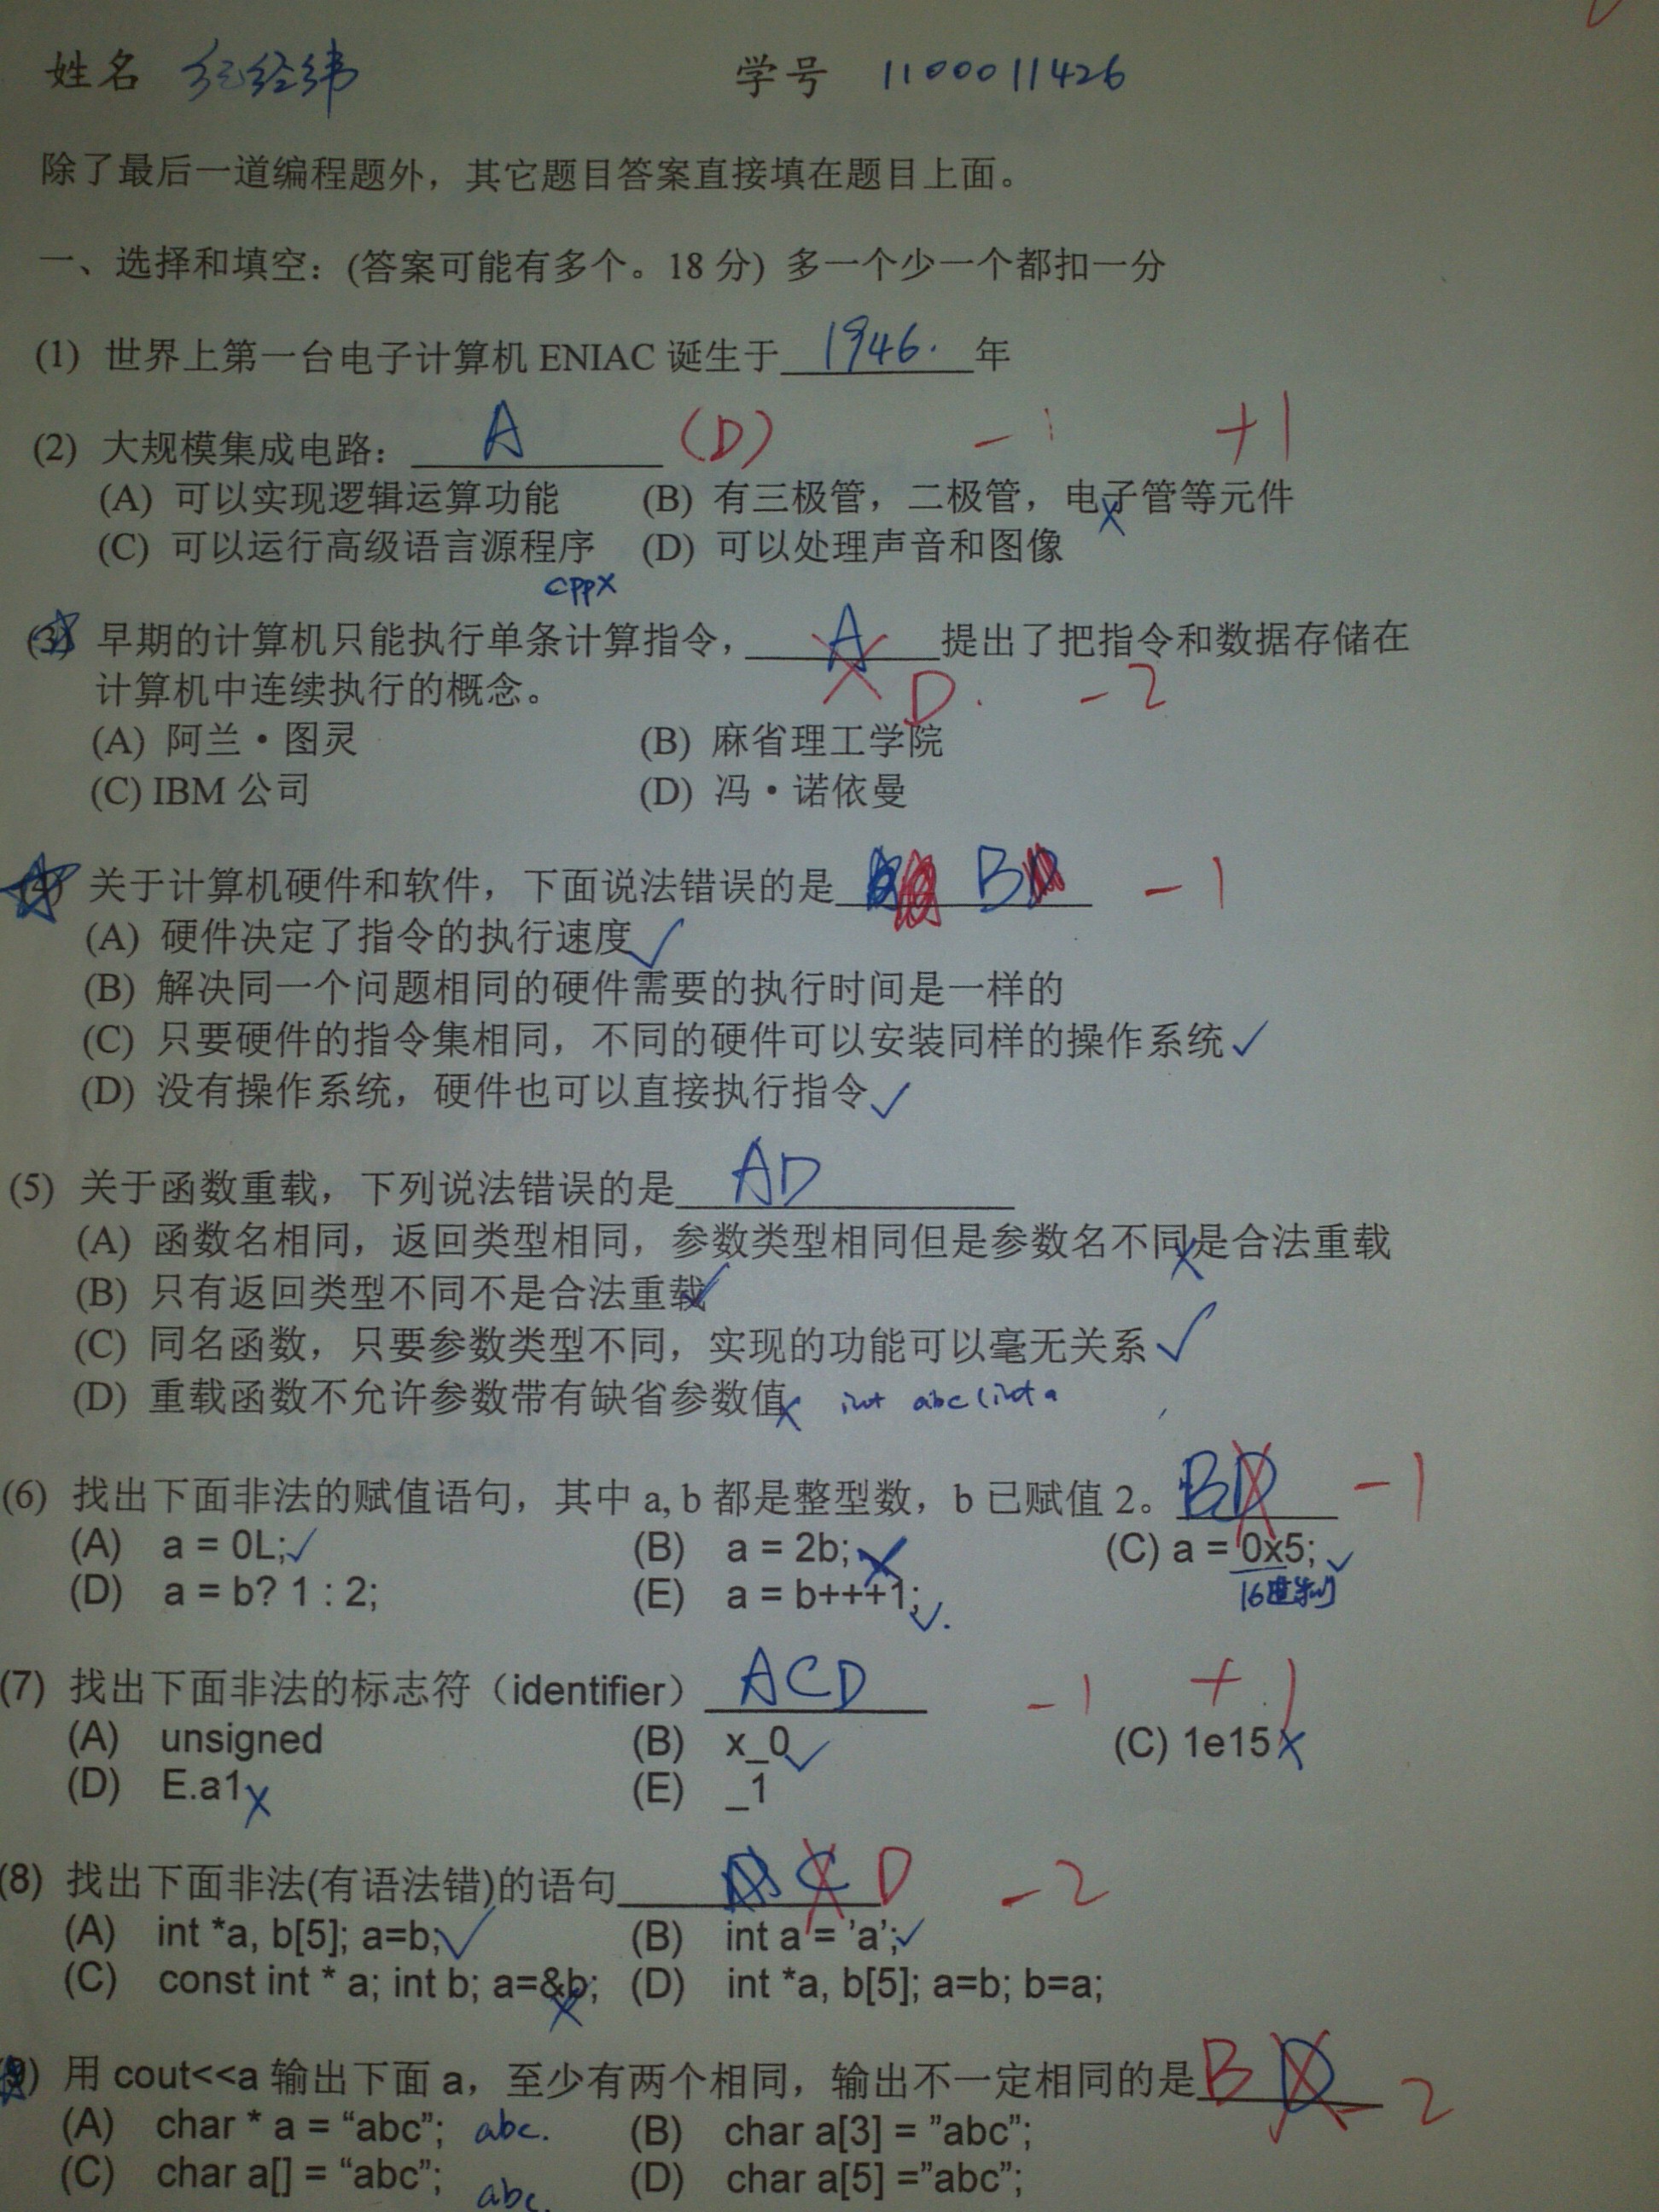 姓名 纪经纬 学号 1100011426
除了最后一道编程题外，其它题目答案直接填在题目上面。
一、选择和填空：(答案可能有多个。18 分) 多一个少一个都扣一分
(1) 世界上第一台电子计算机 ENIAC 诞生于 1946. 年
(2) 大规模集成电路： A (D) -1 +1
(A) 可以实现逻辑运算功能 (B) 有三极管，二极管，电子管等元件
(C) 可以运行高级语言源程序 (D) 可以处理声音和图像
cpp×
(3) 早期的计算机只能执行单条计算指令， A 提出了把指令和数据存储在
计算机中连续执行的概念。 D. -2
(A) 阿兰·图灵 (B) 麻省理工学院
(C) IBM 公司 (D) 冯·诺依曼
(4) 关于计算机硬件和软件，下面说法错误的是 B -1
(A) 硬件决定了指令的执行速度
(B) 解决同一个问题相同的硬件需要的执行时间是一样的
(C) 只要硬件的指令集相同，不同的硬件可以安装同样的操作系统
(D) 没有操作系统，硬件也可以直接执行指令
(5) 关于函数重载，下列说法错误的是 AD
(A) 函数名相同，返回类型相同，参数类型相同但是参数名不同是合法重载
(B) 只有返回类型不同不是合法重载
(C) 同名函数，只要参数类型不同，实现的功能可以毫无关系
(D) 重载函数不允许参数带有缺省参数值 int abc(int a
(6) 找出下面非法的赋值语句，其中 a, b 都是整型数，b 已赋值 2。 BD -1
(A) a = 0L; (B) a = 2b; (C) a = 0x5;
(D) a = b? 1 : 2; (E) a = b+++1; 16进制
(7) 找出下面非法的标志符（identifier） ACD -1 +1
(A) unsigned (B) x_0 (C) 1e15
(D) E.a1 (E) _1
(8) 找出下面非法(有语法错)的语句 C D -2
(A) int *a, b[5]; a=b; (B) int a = ’a’;
(C) const int * a; int b; a=&b; (D) int *a, b[5]; a=b; b=a;
(9) 用 cout<<a 输出下面 a，至少有两个相同，输出不一定相同的是 B D -2
(A) char * a = “abc”; abc. (B) char a[3] = ”abc”;
(C) char a[] = “abc”; abc. (D) char a[5] =”abc”;